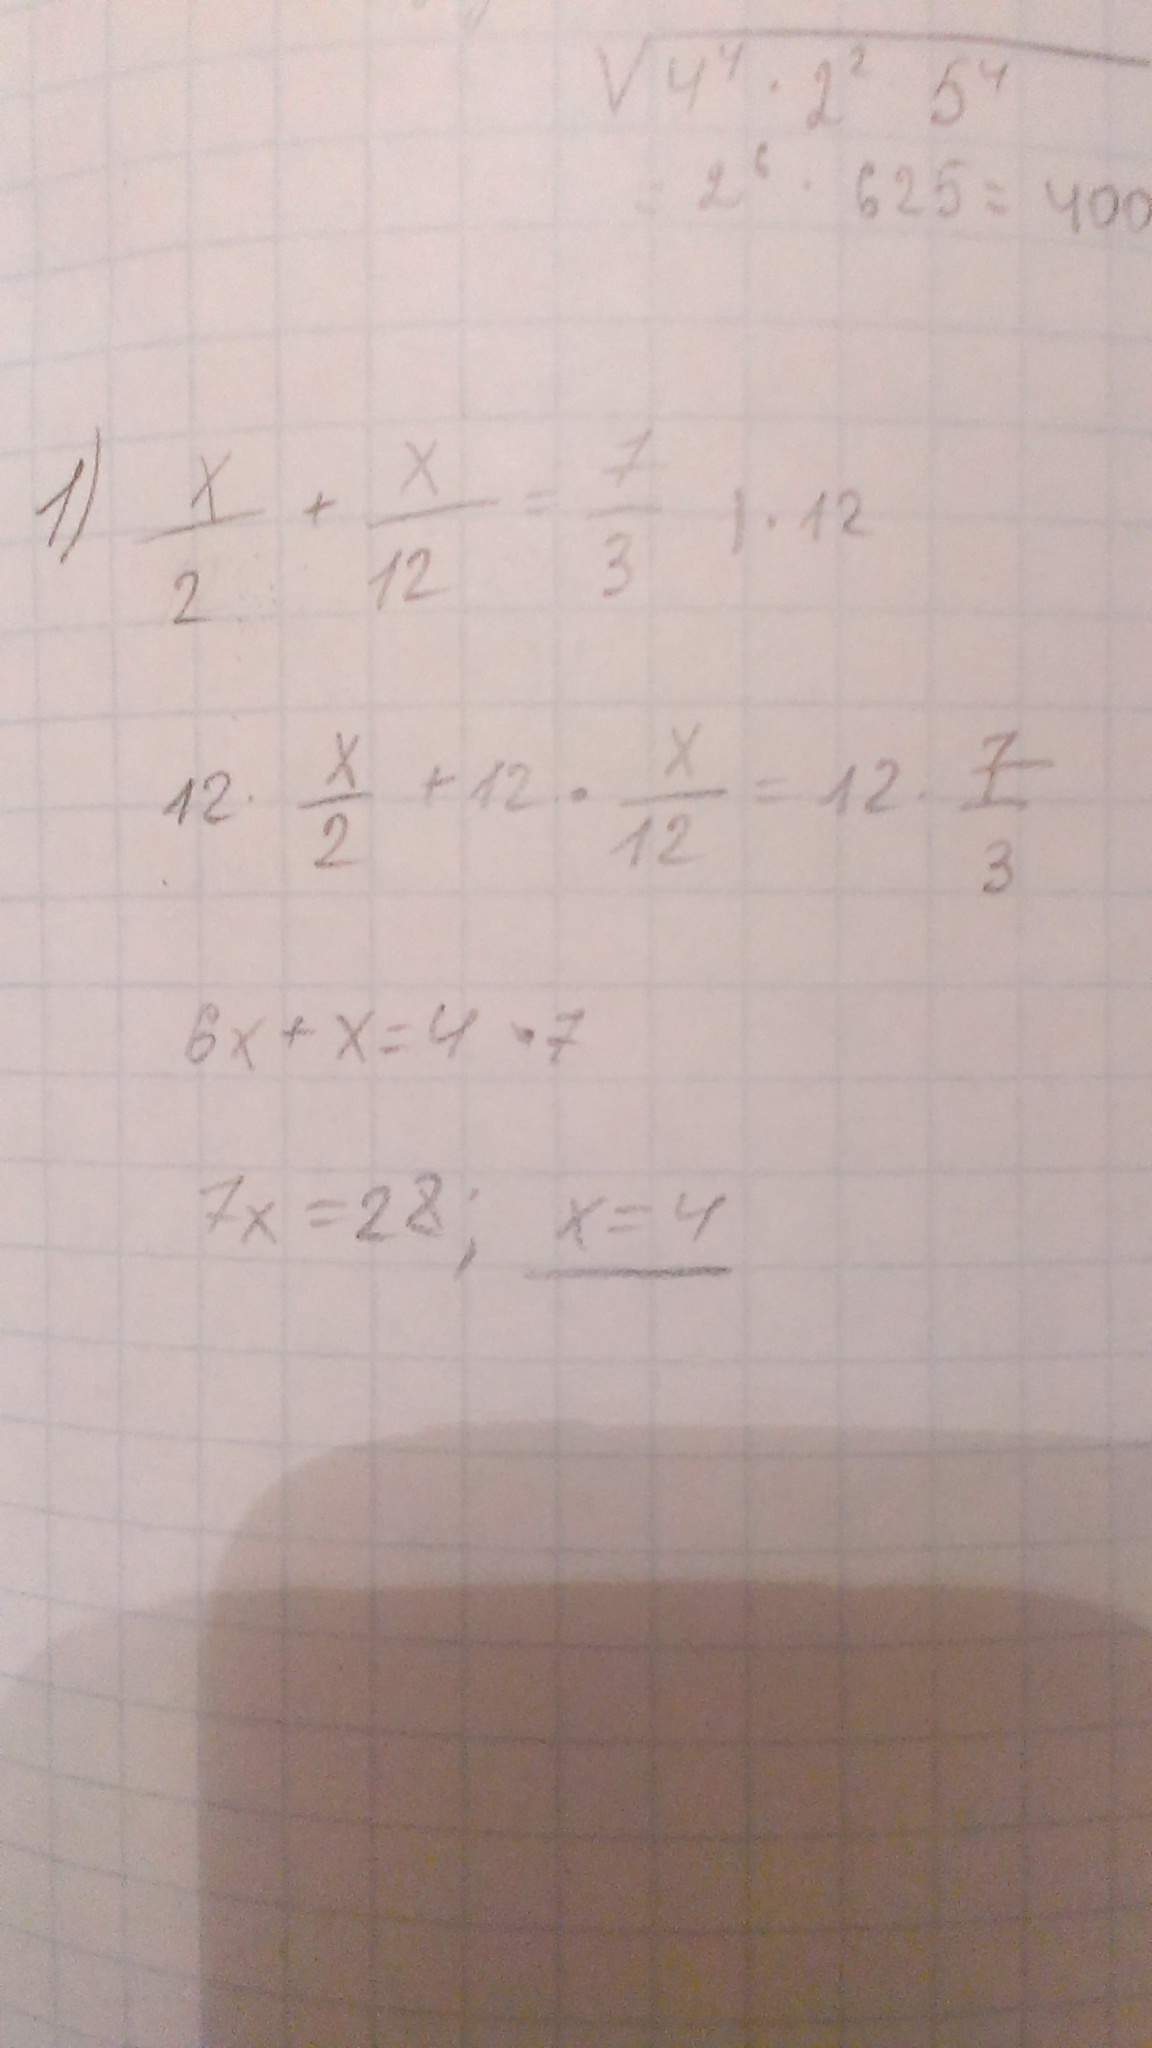 √4⁴ · 2² 5⁴
= 2⁶ · 625 = 400
1) x/2 + x/12 = 7/3 | · 12
12 · x/2 + 12 · x/12 = 12 · 7/3
6x + x = 4 · 7
7x = 28; x = 4